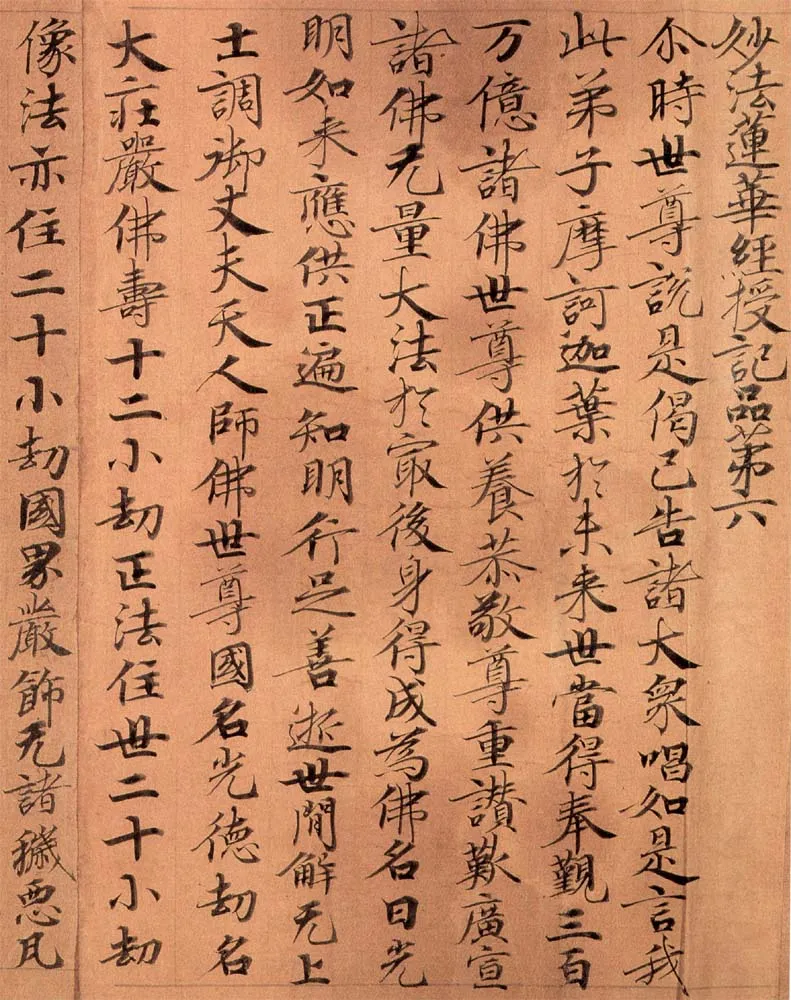 妙法蓮華經授記品苐六
尒時世尊說是偈已告諸大衆唱如是言我
此弟子摩訶迦葉於未来世當得奉覲三百
万億諸佛世尊供養恭敬尊重讃歎廣宣
諸佛无量大法於㝡後身得成為佛名曰光
明如来應供正遍知明行足善逝世間解无上
士調御丈夫天人師佛世尊國名光徳劫名
大荘嚴佛壽十二小劫正法住世二十小劫
像法亦住二十小劫國界嚴飾无諸穢惡凡